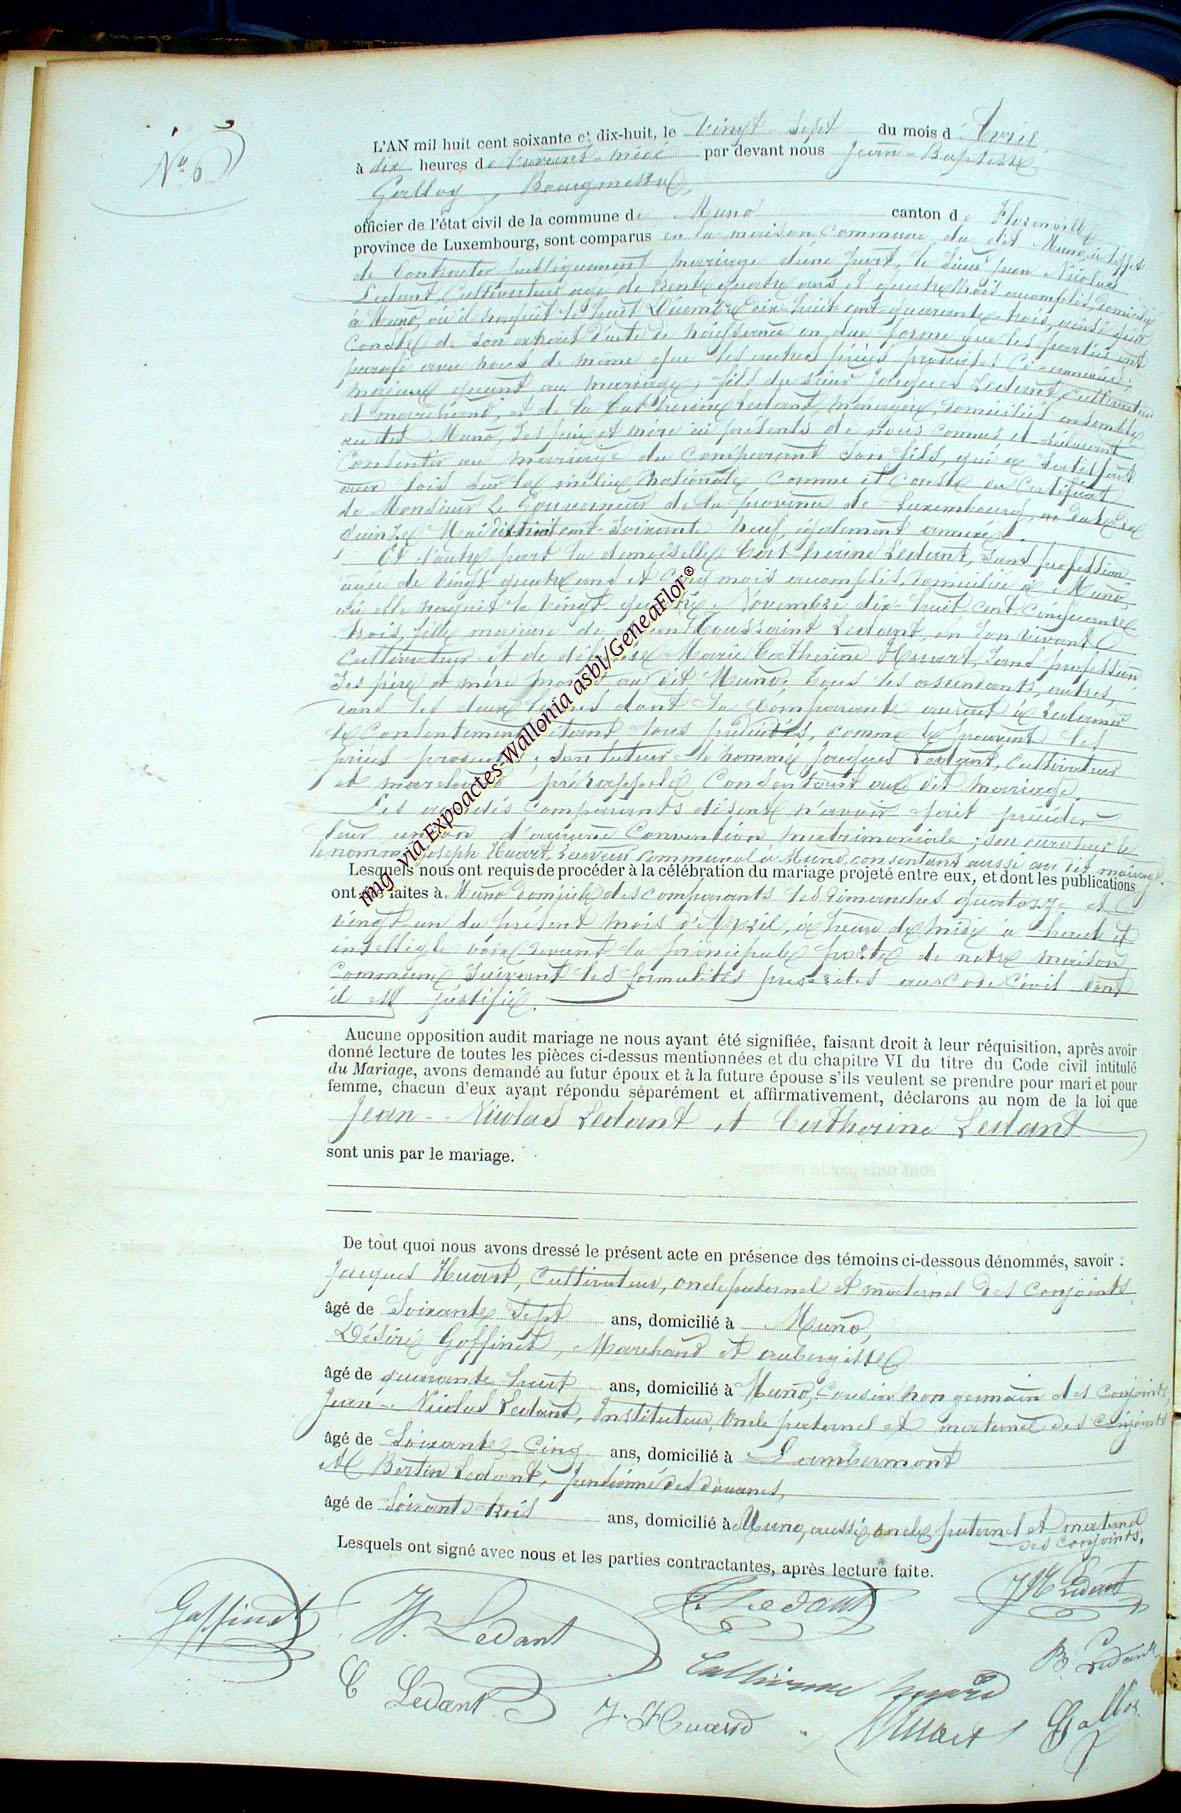 N° 6
L'AN mil huit cent soixante et dix-huit, le vingt sept du mois d'Avril
à dix heures de avant-midi par devant nous Jean-Baptiste
Galloy, Bourgmestre,
officier de l'état civil de la commune de Muno canton de Florenville
province de Luxembourg, sont comparus en la maison commune du dit Muno, à l'effet
de contracter publiquement mariage d'une part, le sieur Jean Nicolas
Ledant, cultivateur âgé de trente quatre ans et quatre mois accomplis, domicilié
à Muno, où il naquit le huit Décembre dix-huit cent quarante-trois, ainsi que
conste de son extrait d'acte de naissance en due forme que les parties ont
paraphé avec nous de même que les autres pièces produites ci-annexées:
majeur quant au mariage, fils du sieur Jacques Ledant, cultivateur
et marchand, et de la Catherine Ledant, ménagère, domiciliés ensemble
au dit Muno, ses père et mère ici présents de nous connus et déclarant
consentir au mariage du comparant son fils, qui a satisfait
aux lois sur la milice nationale comme il conste du certificat
de Monsieur Le Gouverneur de la province de Luxembourg, en date du
quinze Mai dix huit cent soixante neuf, également annexé.
Et d'autre part la demoiselle Catherine Ledant, sans profession
âgée de vingt quatre ans et cinq mois accomplis, domiciliée à Muno,
où elle naquit le vingt Novembre dix-huit cent cinquante
trois, fille majeure de feu Toussaint Ledant, en son vivant
cultivateur et de Marie Catherine Huart, sans profession
ses père et mère au dit Muno. Tous les ascendants, autres
dont la comparante aurait à réclamer
le consentement étant tous prédécédés, comme le prouvent les
pièces produites; son tuteur le nommé Jacques Ledant, cultivateur
et marchand prérappelé consentant au dit mariage.
Les comparants disent n'avoir fait précéder
leur union d'aucune convention matrimoniale; son curateur le
nommé Joseph Huart, receveur communal à Muno, consentant aussi au dit mariage.
Lesquels nous ont requis de procéder à la célébration du mariage projeté entre eux, et dont les publications
ont été faites à Muno domicile des comparants les dimanches quatorze et
vingt un du présent mois d'Avril, à heure de midi à haute et
intelligible voix, devant la principale porte de notre maison
commune suivant les formalités prescrites au code civil dont
il est justifié.
Aucune opposition audit mariage ne nous ayant été signifiée, faisant droit à leur réquisition, après avoir
donné lecture de toutes les pièces ci-dessus mentionnées et du chapitre VI du titre du Code civil intitulé
du Mariage, avons demandé au futur époux et à la future épouse s'ils veulent se prendre pour mari et pour
femme, chacun d'eux ayant répondu séparément et affirmativement, déclarons au nom de la loi que
Jean-Nicolas Ledant et Catherine Ledant
sont unis par le mariage.
De tout quoi nous avons dressé le présent acte en présence des témoins ci-dessous dénommés, savoir :
Jacques Huart, cultivateur, oncle paternel et maternel des conjoints
âgé de soixante sept ans, domicilié à Muno,
Désiré Goffinet, Marchand et aubergiste
âgé de quarante huit ans, domicilié à Muno, cousin non germain des conjoints,
Jean-Nicolas Ledant, Instituteur, oncle paternel et maternel des conjoints
âgé de soixante-cinq ans, domicilié à Lambermont
Et Bertin Ledant, pensionné des douanes,
âgé de soixante-trois ans, domicilié à Muno, aussi oncle paternel et maternel
des conjoints,
Lesquels ont signé avec nous et les parties contractantes, après lecture faite.
Goffinet N. Ledant J. Ledant JN Ledant
C Ledant J. Huard Catherine B. Ledant
Huart Galloy
Img via Expoactes-Wallonia asbl/GeneaFlor®